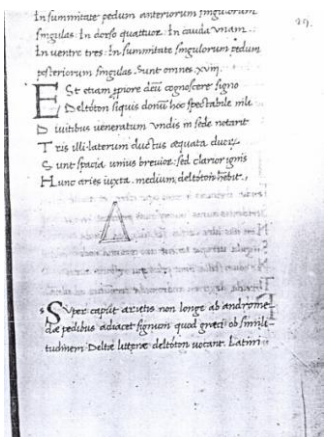 In summitate pedum anteriorum singulorum
singulas. In dorso quattuor. In cauda unam.
In uentre tres. In summitate singulorum pedum
posteriorum singulas. Sunt omnes xviii.
Est etiam priore deū cognoscere signo
Deltoton siquis donū hoc spectabile nile
Diuitibus ueneratum undis in sede notarit
Tris illi laterum ductus æquata duor
Sunt spacia unius breuior: sed clarior ignis
Hunc aries iuxta. medium deltoton
Super caput arietis non longe ab androme
dæ pedibus adiacet signum quod græci ob simili
tudinem Deltæ litteræ deltoton uocant. Latini